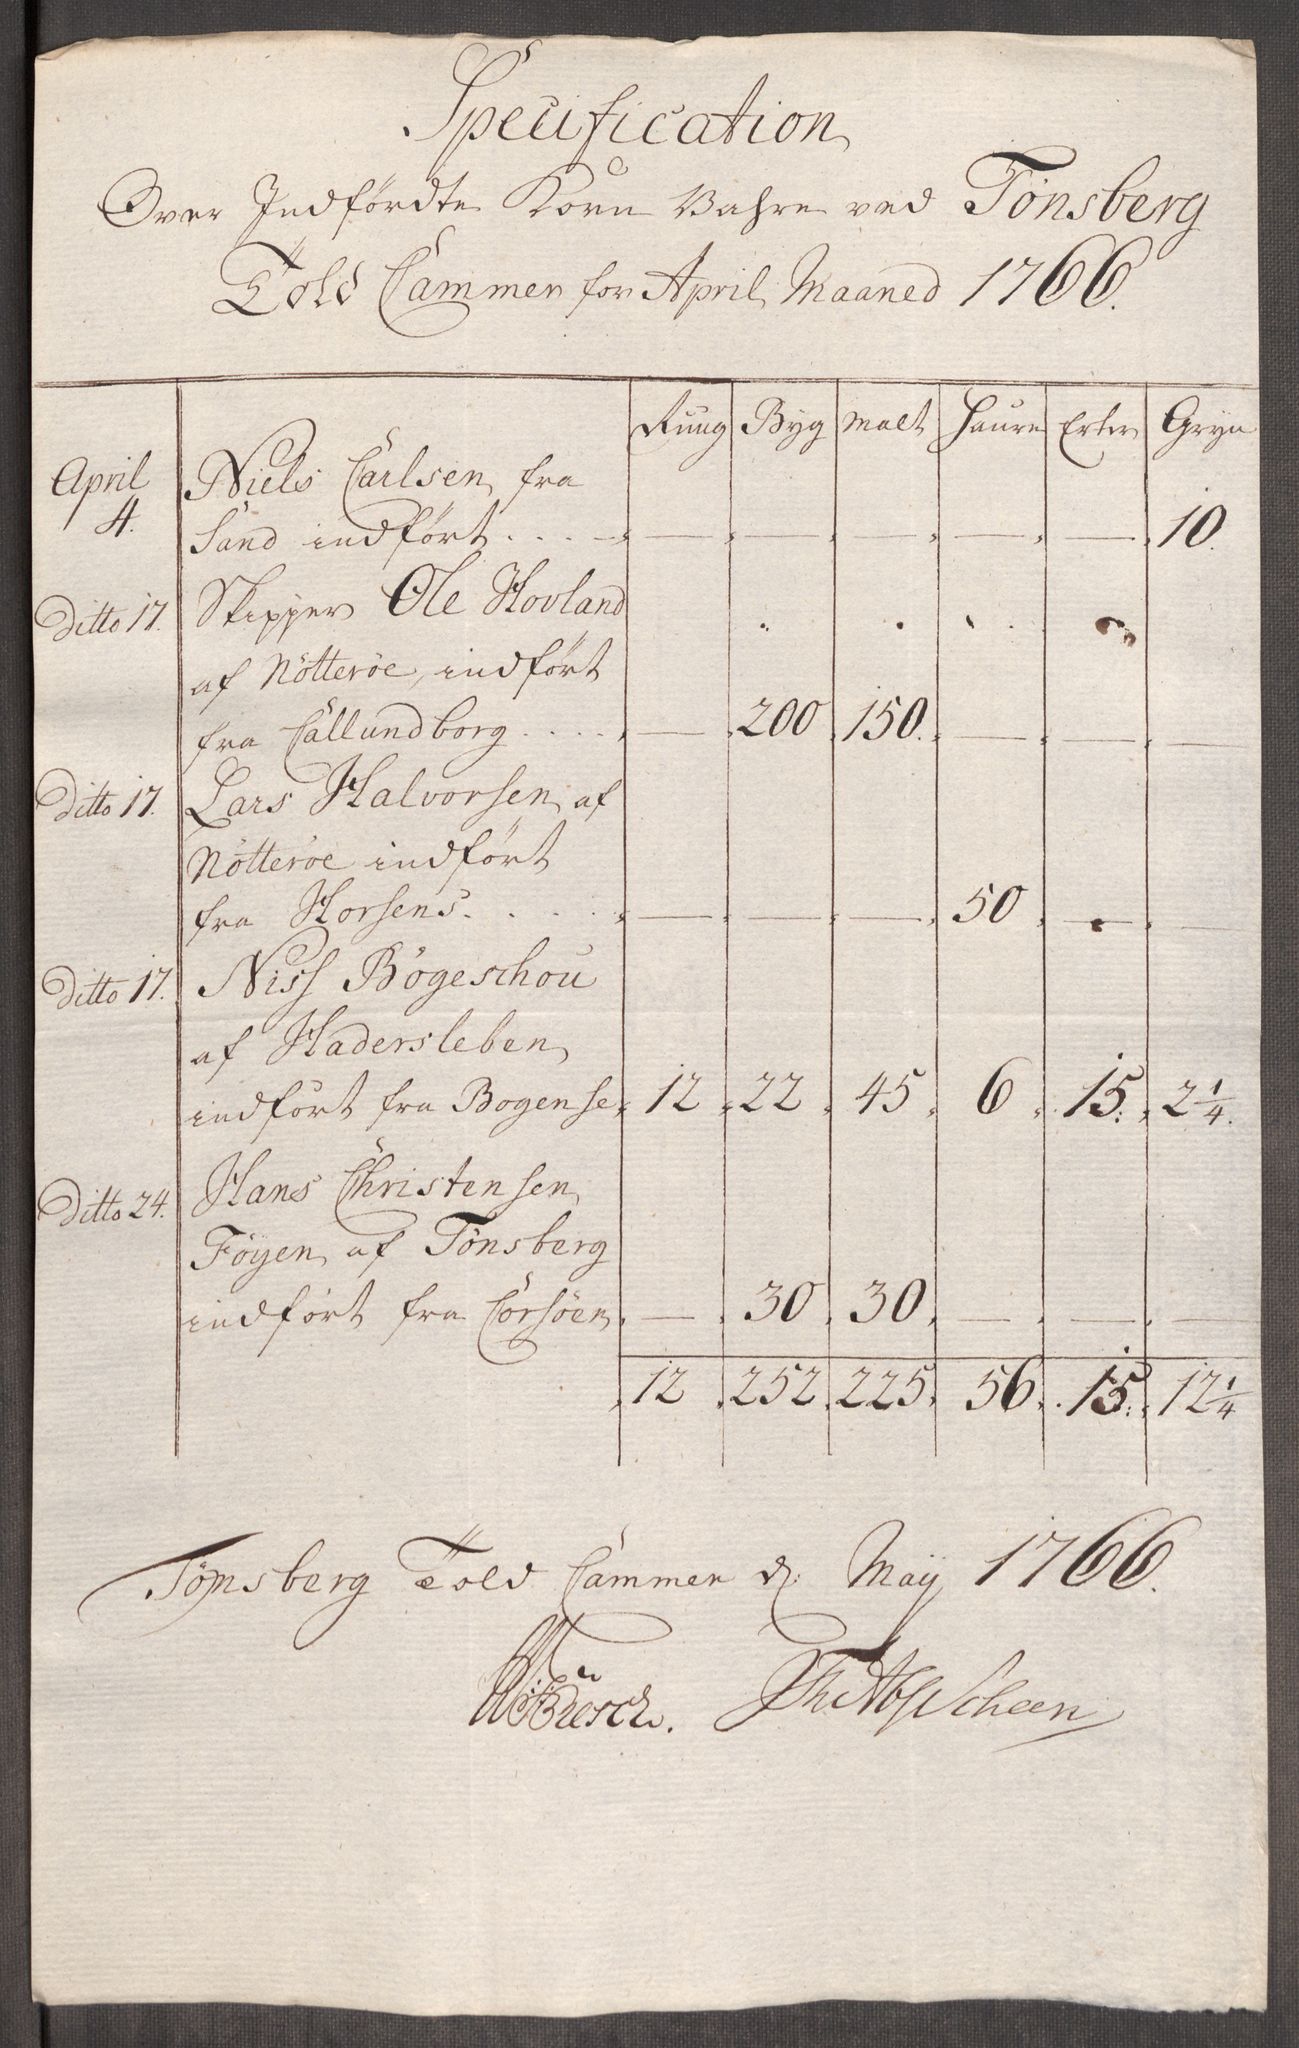 Specification
Over Indførdte Korn Vahre ved Tønsberg
Told Cammer for April Maaned 1766.
Ruug Byg Malt Haure Erter Gryn
April Niels Carlsen fra
4. Sand indført . . . . — — — — — 10.
Ditto 17. Skipper Ole Hovland
af Nötteröe, indført
fra Callundborg . . . . — 200 150. — — —
Ditto 17. Lars Halvorsen af
Nötteröe indført
fra Horsens. . . . . — — — 50 — —
Ditto 17. Niss Bögeschou
af Hadersleben
indført fra Bogense 12 22 45 6 15 2 1/4.
Ditto 24. Hans Christensen
Föyen af Tønsberg
indført fra Corsöen — 30 30 — — —
12 252 225 56 15 12 1/4
Tönsberg Told Cammer d: Maij 1766.
Scheen